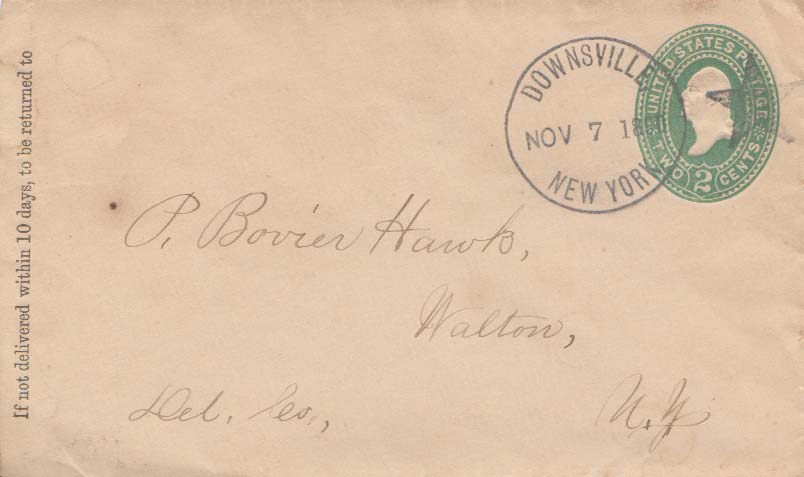 If not delivered within 10 days, to be returned to
DOWNSVILLE
NOV 7
NEW YORK
UNITED STATES POSTAGE
TWO 2 CENTS
P. Bovier Hawk,
Walton,
Del. Co., N.Y.